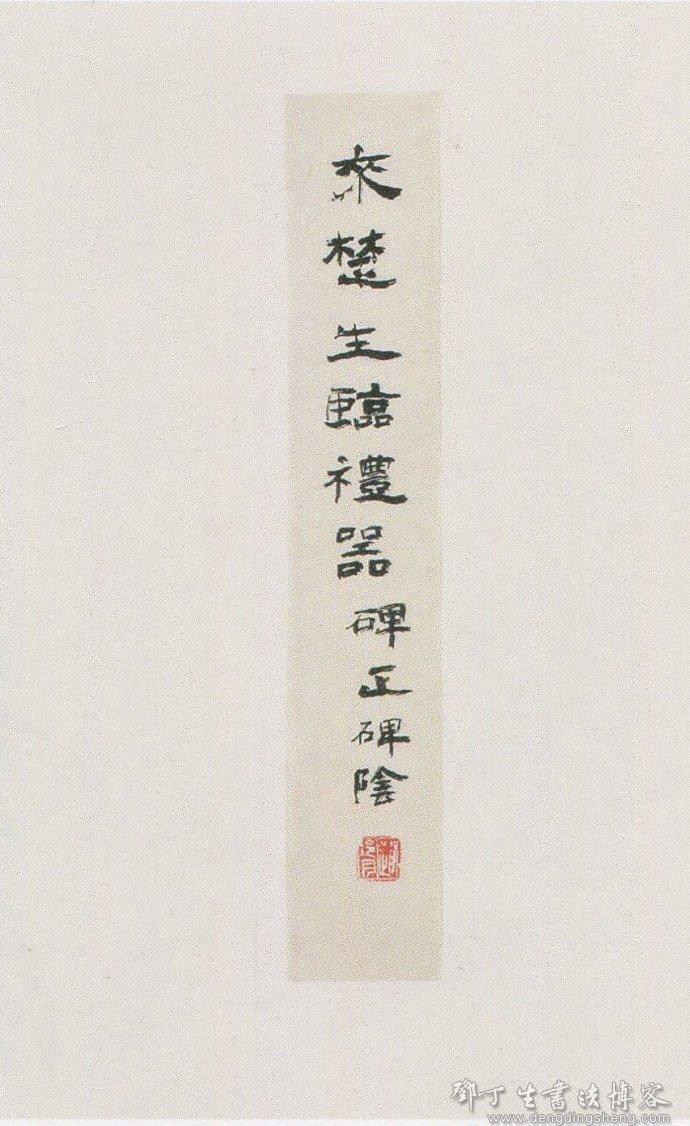 來楚生臨禮器碑正碑陰
鄧丁生書法博客
www.dengdingsheng.com